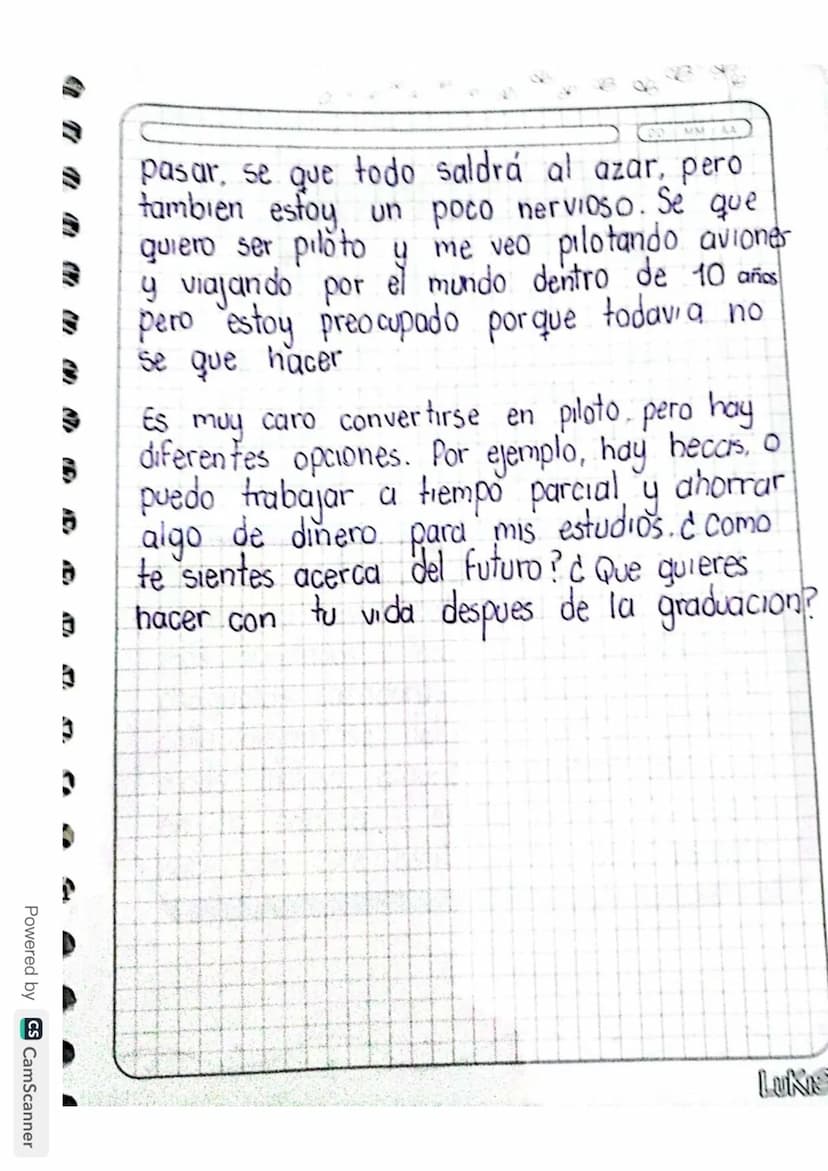 DD MM AA
pasar. se que todo saldrá al azar, pero
tambien estoy un poco nervioso. Se que
quiero ser piloto y me veo pilotando aviones
y viajando por el mundo dentro de 10 años
pero estoy preocupado porque todavia no
se que hacer
Es muy caro convertirse en piloto. pero hay
diferentes opciones. Por ejemplo, hay becas, o
puedo trabajar a tiempo parcial y ahorrar
algo de dinero para mis estudios. ¿ Como
te sientes acerca del futuro? ¿ Que quieres
hacer con tu vida despues de la graduacion?
Powered by CS CamScanner